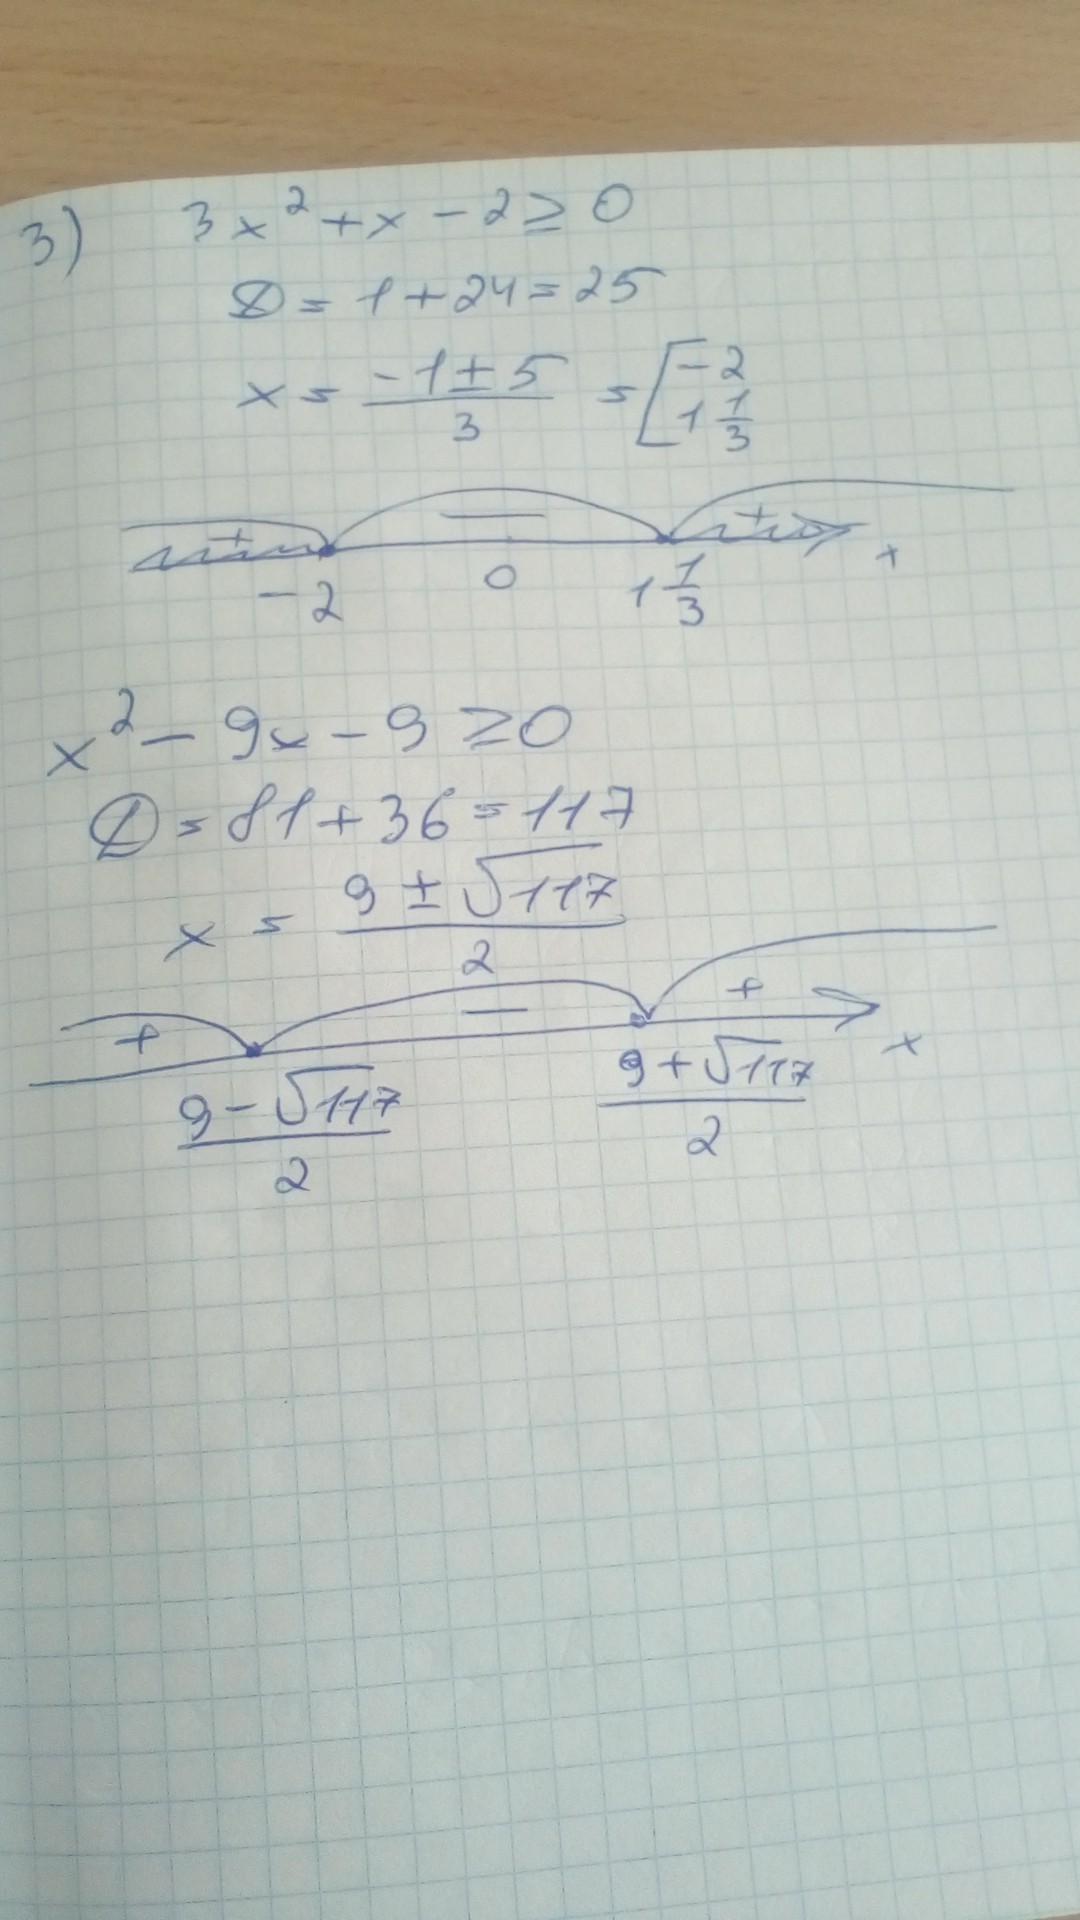 3) 3x² + x - 2 ≥ 0
D = 1 + 24 = 25
x = (-1 ± 5)/3 = [-2; 1 1/3
+ — +
-2 0 1 1/3 x
x² - 9x - 9 ≥ 0
D = 81 + 36 = 117
x = (9 ± √117)/2
+ — +
(9 - √117)/2 (9 + √117)/2 x